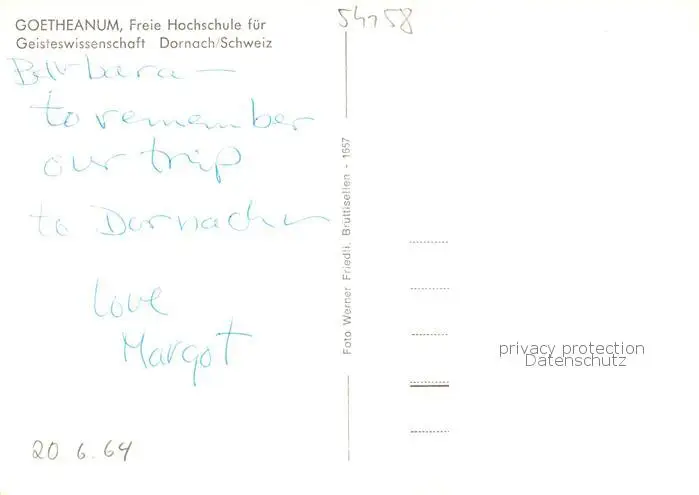 GOETHEANUM, Freie Hochschule für
Geisteswissenschaft Dornach/Schweiz
54758
Barbara —
to remember
our trip
to Dornach
love
Margot
20 6.64
Foto Werner Friedli, Brüttisellen - 1657
privacy protection
Datenschutz